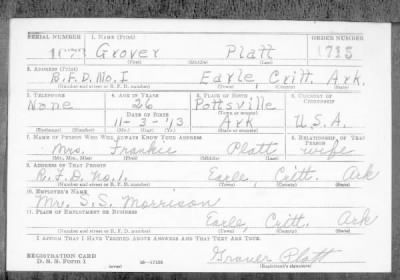 SERIAL NUMBER 1. NAME (Print) ORDER NUMBER
Grover Platt 1715
(First) (Middle) (Last)
2. ADDRESS (Print)
R.F.D. No. 1 Earle Critt. Ark.
(Number and street or R. F. D. number) (Town) (County) (State)
3. TELEPHONE 4. AGE IN YEARS 5. PLACE OF BIRTH 6. COUNTRY OF CITIZENSHIP
None 26 Pottsville
DATE OF BIRTH (Town or county)
11-3-'13 Ark U.S.A.
(Exchange) (Number) (Mo.) (Day) (Yr.) (State or country)
7. NAME OF PERSON WHO WILL ALWAYS KNOW YOUR ADDRESS 8. RELATIONSHIP OF THAT PERSON
Mrs. Frankie Platt wife
(Mr., Mrs., Miss) (First) (Middle) (Last)
9. ADDRESS OF THAT PERSON
R.F.D. No. 1. Earle, Critt. Ark
(Number and street or R. F. D. number) (Town) (County) (State)
10. EMPLOYER'S NAME
Mr. S.S. Morrison
11. PLACE OF EMPLOYMENT OR BUSINESS
Earle, Critt. Ark
(Number and street or R. F. D. number) (Town) (County) (State)
I AFFIRM THAT I HAVE VERIFIED ABOVE ANSWERS AND THAT THEY ARE TRUE.
REGISTRATION CARD
D. S. S. Form 1 (over) 16-17105 Grover Platt
(Registrant's signature)